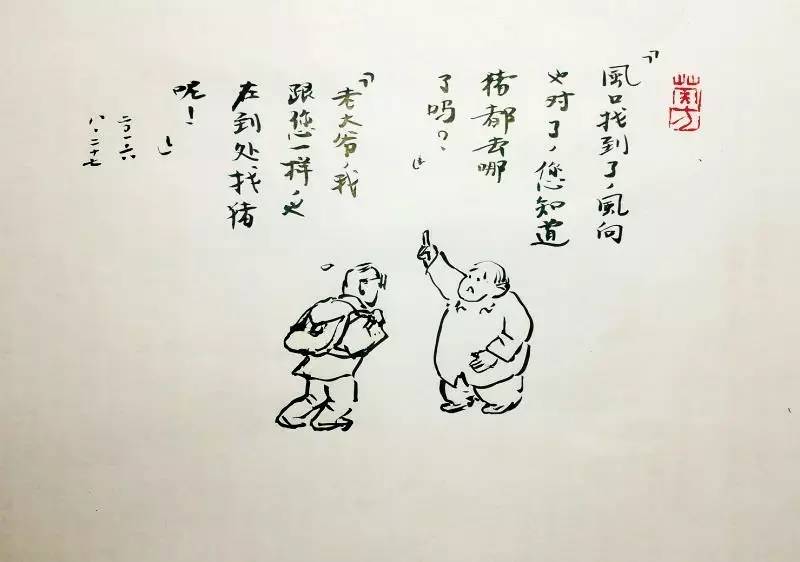 「風口找到了，風向
也对了，您知道
猪都去哪
了吗？」
「老大爷，我
跟您一样，也
在到处找猪
呢！」
二〇一六
八·二十七